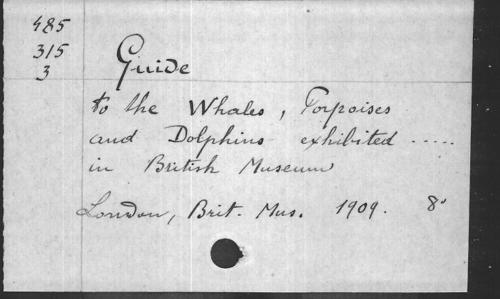 485
315
3
Guide
to the Whales, Porpoises
and Dolphins exhibited .....
in British Museum
London, Brit. Mus. 1909. 8°